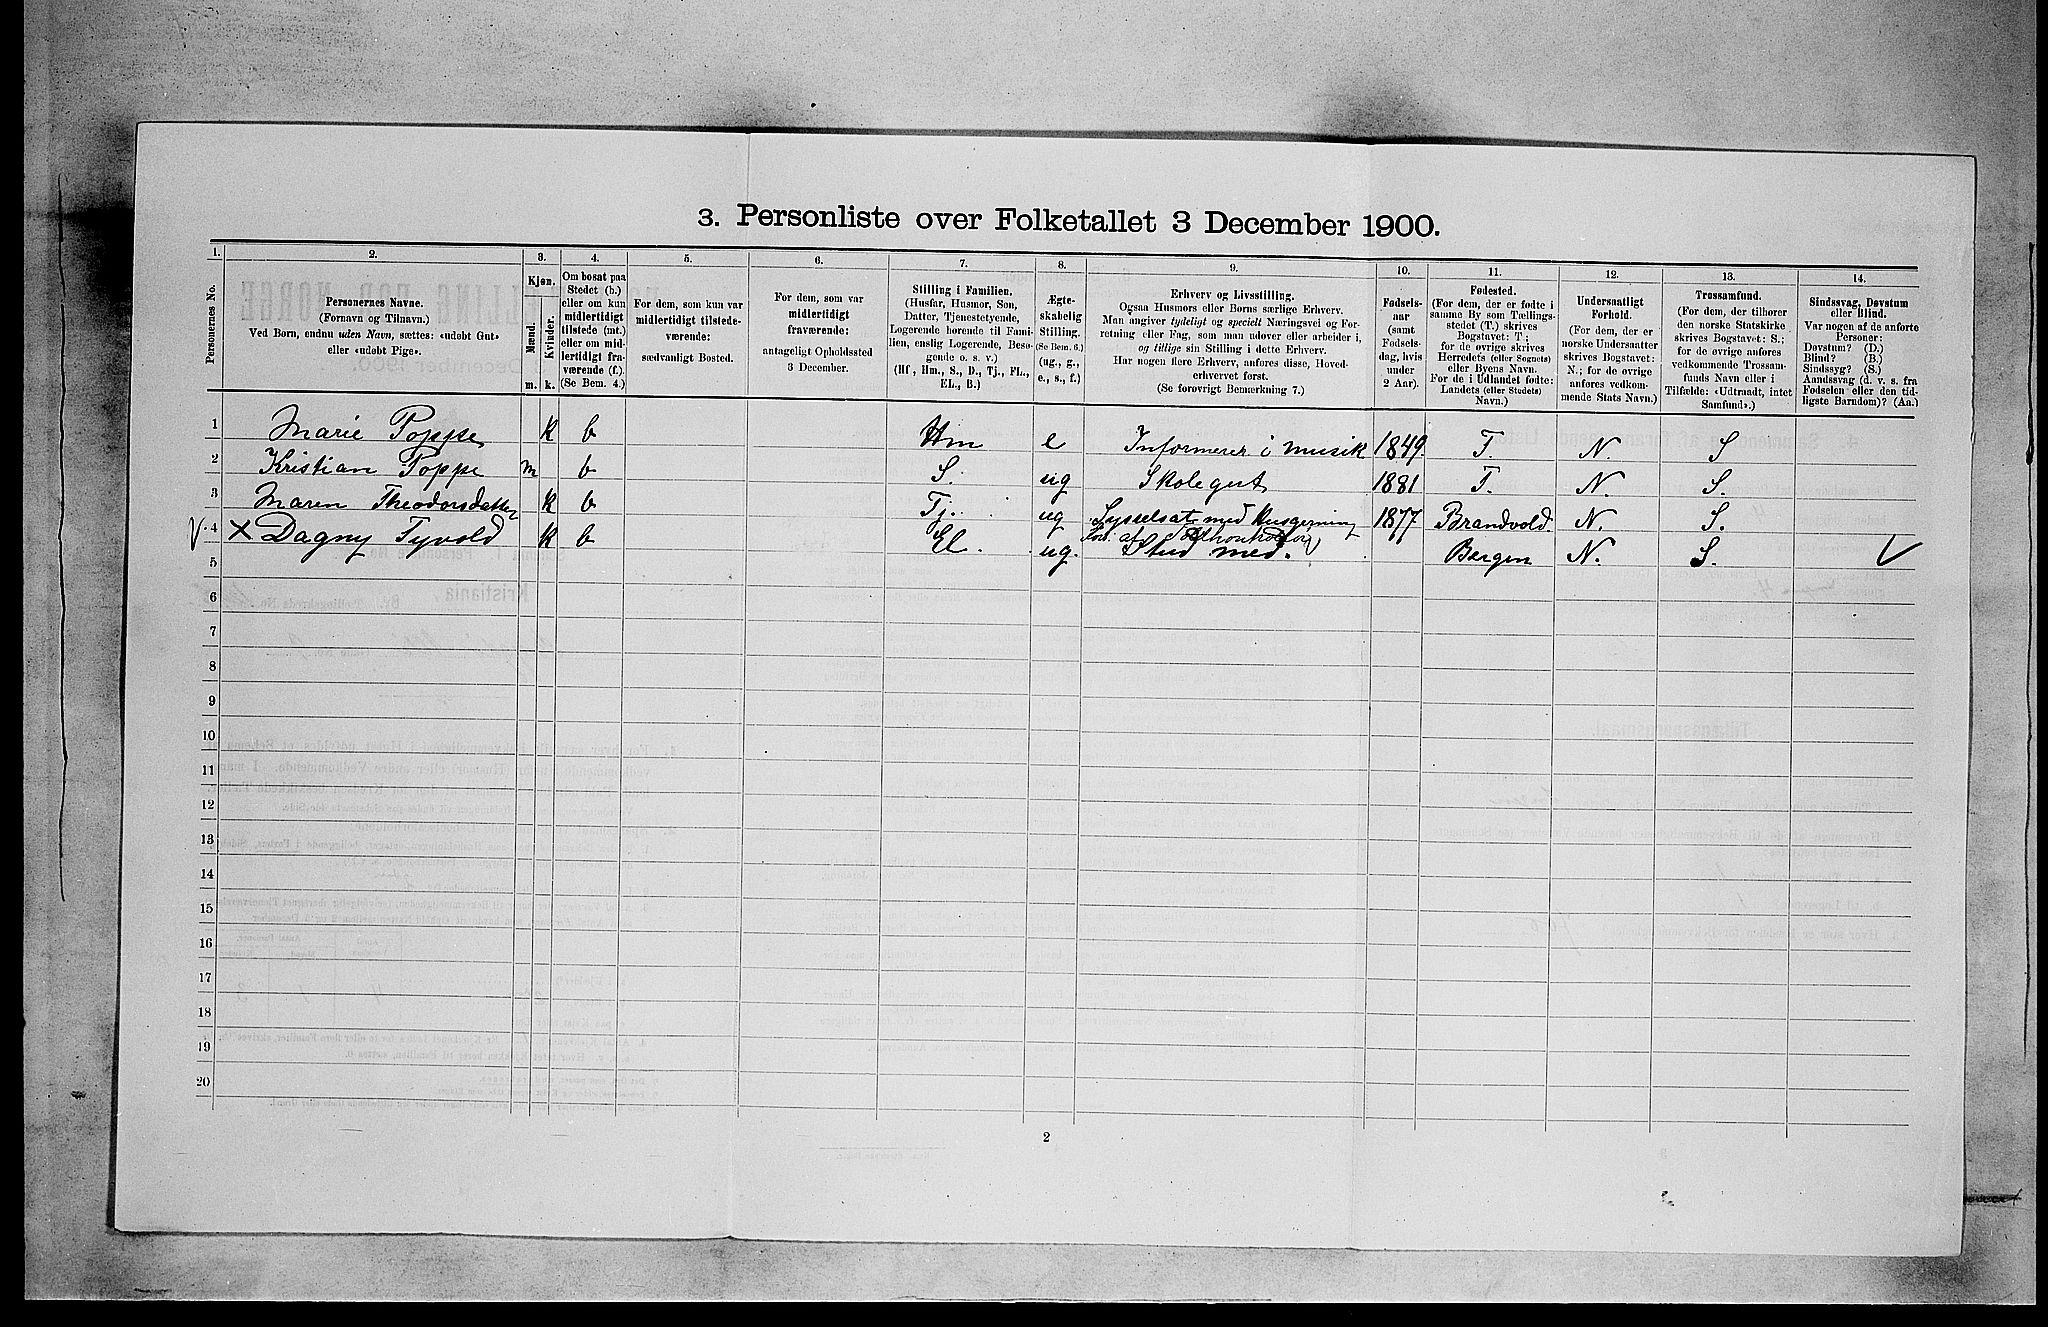 3. Personliste over Folketallet 3 December 1900.
1. 2. 3. 4. 5. 6. 7. 8. 9. 10. 11. 12. 13. 14.
Personernes No.
Personernes Navne.
(Fornavn og Tilnavn.)
Ved Børn, endnu uden Navn, sættes: «udøbt Gut»
eller «udøbt Pige».
Kjøn.
Mænd.
Kvinder.
m. k.
Om bosat paa
Stedet (b.)
eller om kun
midlertidigt
tilstede (mt.)
eller om mid-
lertidigt fra-
værende (f.).
(Se Bem. 4.)
For dem, som kun var
midlertidigt tilstede-
værende:
sædvanligt Bosted.
For dem, som var
midlertidigt
fraværende:
antageligt Opholdssted
3 December.
Stilling i Familien.
(Husfar, Husmor, Søn,
Datter, Tjenestetyende,
Logerende hørende til Fami-
lien, enslig Logerende, Besø-
gende o. s. v.)
(Hf, Hm., S., D., Tj., FL.,
EL., B.)
Ægte-
skabelig
Stilling.
(Se Bem. 6.)
(ug., g.,
e., s., f.)
Erhverv og Livsstilling.
Ogsaa Husmors eller Børns særlige Erhverv.
Man angiver tydeligt og specielt Næringsvei og For-
retning eller Fag, som man udøver eller arbeider i,
og tillige sin Stilling i dette Erhverv.
Har nogen flere Erhverv, anføres disse, Hoved-
erhvervet først.
(Se forøvrigt Bemerkning 7.)
Fødsels-
aar
(samt
Fødsels-
dag, hvis
under
2 Aar).
Fødested.
(For dem, der er fødte i
samme By som Tællings-
stedet (T.) skrives
Bogstavet: T.;
for de øvrige skrives
Herredets (eller Sognets)
eller Byens Navn.
For de i Udlandet fødte:
Landets (eller Stedets)
Navn.)
Undersaatligt
Forhold.
(For dem, der er
norske Undersaatter
skrives Bogstavet:
N.; for de øvrige
anføres vedkom-
mende Stats Navn.)
Trossamfund.
(For dem, der tilhører
den norske Statskirke
skrives Bogstavet: S.;
for de øvrige anføres
vedkommende Trossam-
funds Navn eller i
Tilfælde: «Udtraadt, intet
Samfund».)
Sindssvag, Døvstum
eller Blind.
Var nogen af de anførte
Personer:
Døvstum? (D.)
Blind? (B.)
Sindssyg? (S.)
Aandssvag (d. v. s. fra
Fødselen eller den tid-
ligste Barndom)? (Aa.)
1 Marie Poppe k b Hm e Informerer i musik 1849 T. N. S
2 Kristian Poppe m b S. ug Skolegut 1881 T. N. S.
3 Maren Theodorsdatter k b Tj. ug Sysselsat med Husgjerning 1877 Brandvold N. S.
4 X Dagny Tyvold k b El. ug. Stud med. Bergen N. S.
5
6
7
8
9
10
11
12
13
14
15
16
17
18
19
20
2